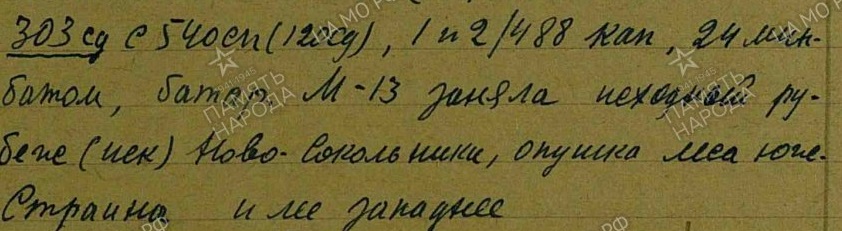 303 сд с 540сп (120сд), 1 и 2/488 кап, 24 мин-
батом, батар. М-13 заняла исходный ру-
беж (иск) Ново-Сокольники, опушка леса юж.
Страино и лес западнее
ПАМЯТЬ НАРОДА
ПАМЯТЬ НАРОДА